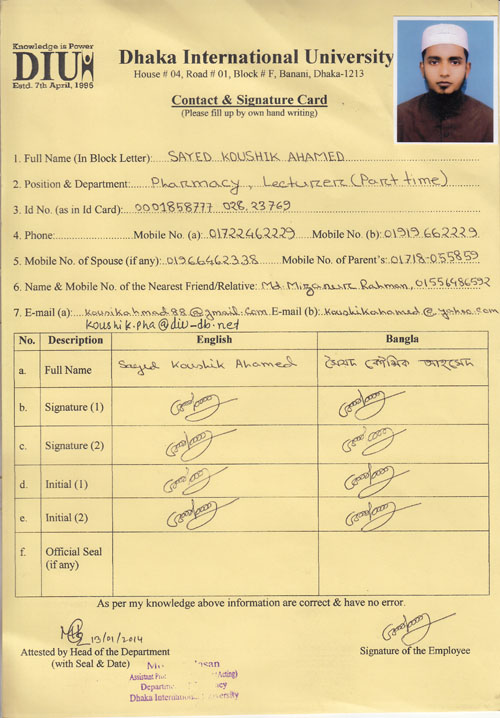 Knowledge is Power
DIU
Estd. 7th April, 1995
Dhaka International University
House # 04, Road # 01, Block # F, Banani, Dhaka-1213
Contact & Signature Card
(Please fill up by own hand writing)
1. Full Name (In Block Letter): SAYED KOUSHIK AHAMED
2. Position & Department: Pharmacy, Lecturer (Part time)
3. Id No. (as in Id Card): 0001858777 028.23769
4. Phone: Mobile No. (a): 01722462229 Mobile No. (b): 01919662229
5. Mobile No. of Spouse (if any): 01966462338 Mobile No. of Parent's: 01718-055859
6. Name & Mobile No. of the Nearest Friend/Relative: Md. Mizanur Rahman, 01556486592
7. E-mail (a): kousikahmad88@gmail.com E-mail (b): koushikahamed@yahoo.com
koushik.pha@diu-db.net
No. Description English Bangla
a. Full Name Sayed Koushik Ahamed সৈয়দ কৌশিক আহমেদ
b. Signature (1)
c. Signature (2)
d. Initial (1)
e. Initial (2)
f. Official Seal
(if any)
As per my knowledge above information are correct & have no error.
13/01/2014
Attested by Head of the Department
(with Seal & Date)
Signature of the Employee
Assistant (Acting)
Department
Dhaka International University